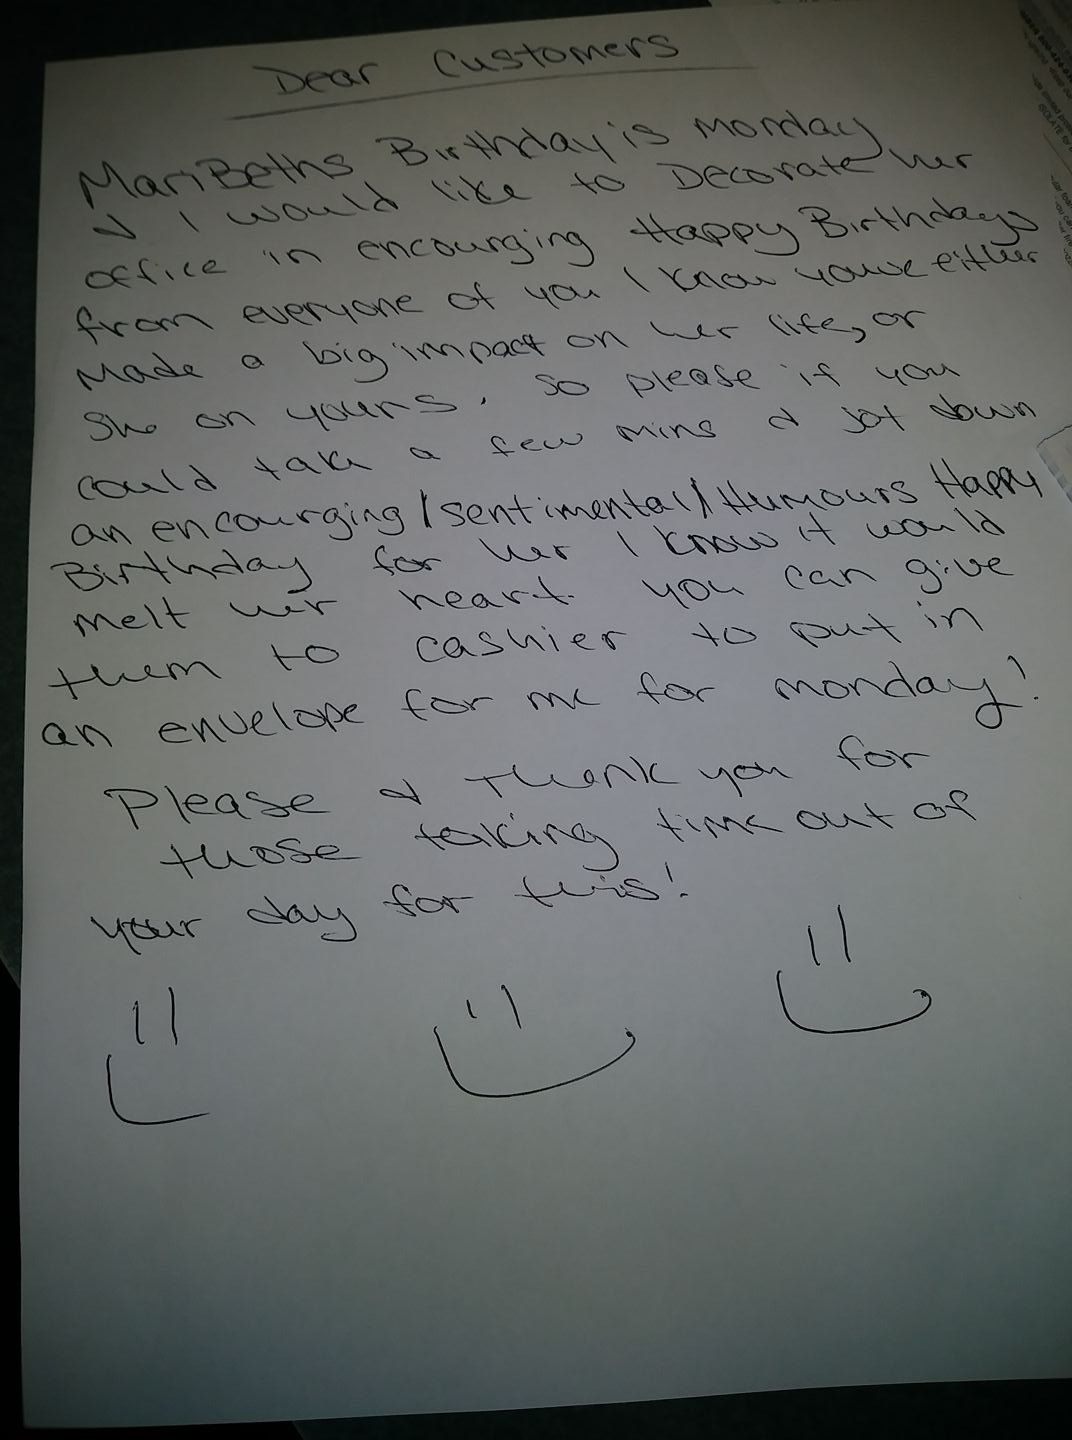 Dear Customers
MariBeths Birthday is Monday
& I would like to Decorate her
office in encourging Happy Birthdays
from everyone of you I know youve either
Made a big impact on her life, or
She on yours. So please if you
could take a few mins & jot down
an encourging/sentimental/Humours Happy
Birthday for her I know it would
melt her heart. You can give
them to cashier to put in
an envelope for me for monday!
Please & Thank you for
those taking time out of
your day for this!